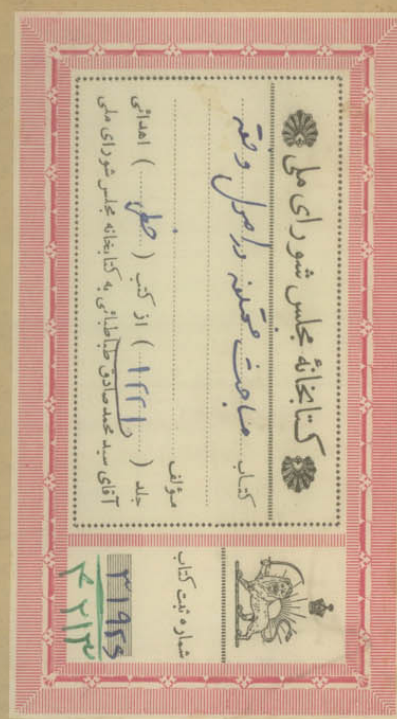 کتابخانهٔ مجلس شورای ملی
کتاب مباحث مختلفه در اصول و فقه
مؤلف
جلد ( ۱۲۲۱ ) از کتب ( خطی ) اهدائی
آقای سید محمد صادق طباطبائی به کتابخانه مجلس شورای ملی
شماره ثبت کتاب
۳۱۹۲۶
۴۲۱۳